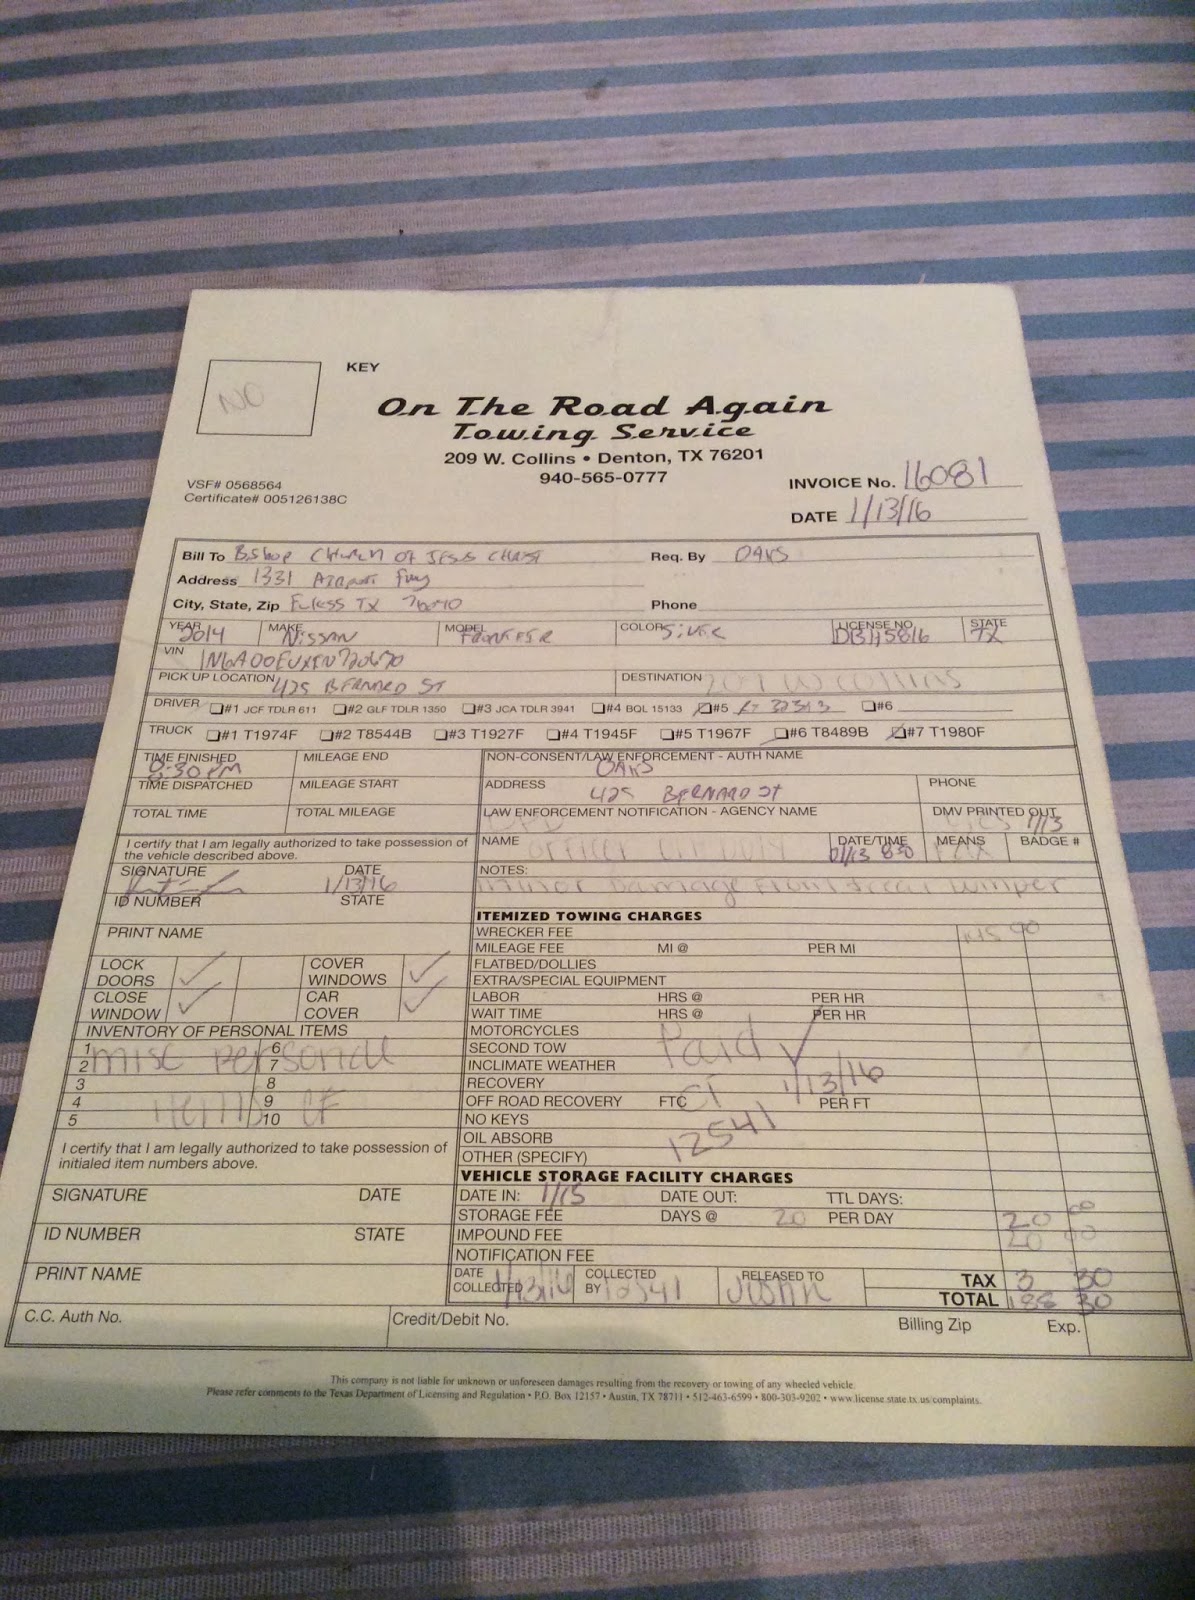 NO
KEY
On The Road Again
Towing Service
209 W. Collins • Denton, TX 76201
940-565-0777
VSF# 0568564
Certificate# 005126138C
INVOICE No. 16081
DATE 1/13/16
Bill To Bishop Church of Jesus Christ Req. By OAKS
Address 1331 Airport Fwy
City, State, Zip Euless TX 76040 Phone
YEAR 2014 MAKE NISSAN MODEL FRONTIER COLOR SILVER LICENSE NO. DBH5816 STATE TX
VIN
PICK UP LOCATION 425 BERNARD ST DESTINATION 209 W Collins
DRIVER #1 JCF TDLR 611 #2 GLF TDLR 1350 #3 JCA TDLR 3941 #4 BQL 15133 #5 #6
TRUCK #1 T1974F #2 T8544B #3 T1927F #4 T1945F #5 T1967F #6 T8489B #7 T1980F
TIME FINISHED 8:30 PM MILEAGE END NON-CONSENT/LAW ENFORCEMENT - AUTH NAME OAKS
TIME DISPATCHED MILEAGE START ADDRESS 425 BERNARD ST PHONE
TOTAL TIME TOTAL MILEAGE LAW ENFORCEMENT NOTIFICATION - AGENCY NAME DPD DMV PRINTED OUT 1/13
I certify that I am legally authorized to take possession of
the vehicle described above.
NAME Officer DATE/TIME 01/13 830 MEANS Fax BADGE #
SIGNATURE DATE 1/13/16
NOTES: minor Damage Front & rear bumper
ID NUMBER STATE
PRINT NAME
ITEMIZED TOWING CHARGES
WRECKER FEE 145 00
MILEAGE FEE MI @ PER MI
FLATBED/DOLLIES
EXTRA/SPECIAL EQUIPMENT
LABOR HRS @ PER HR
WAIT TIME HRS @ PER HR
MOTORCYCLES
SECOND TOW
INCLIMATE WEATHER
RECOVERY
OFF ROAD RECOVERY FTC PER FT
NO KEYS
OIL ABSORB
OTHER (SPECIFY)
Paid
CF 1/13/16
12541
LOCK DOORS COVER WINDOWS
CLOSE WINDOW CAR COVER
INVENTORY OF PERSONAL ITEMS
1 6
2 7
3 8
4 9
5 10
misc personal
items CF
I certify that I am legally authorized to take possession of
initialed item numbers above.
SIGNATURE DATE
ID NUMBER STATE
PRINT NAME
VEHICLE STORAGE FACILITY CHARGES
DATE IN: 1/13 DATE OUT: TTL DAYS:
STORAGE FEE DAYS @ 20 PER DAY 20 00
IMPOUND FEE 20 00
NOTIFICATION FEE
DATE COLLECTED 1/13/16 COLLECTED BY 12541 RELEASED TO Justin
TAX 3 30
TOTAL 188 30
C.C. Auth No. Credit/Debit No. Billing Zip Exp.
This company is not liable for unknown or unforeseen damages resulting from the recovery or towing of any wheeled vehicle.
Please refer comments to the Texas Department of Licensing and Regulation • P.O. Box 12157 • Austin, TX 78711 • 512-463-6599 • 800-303-9202 • www.license.state.tx.us/complaints.